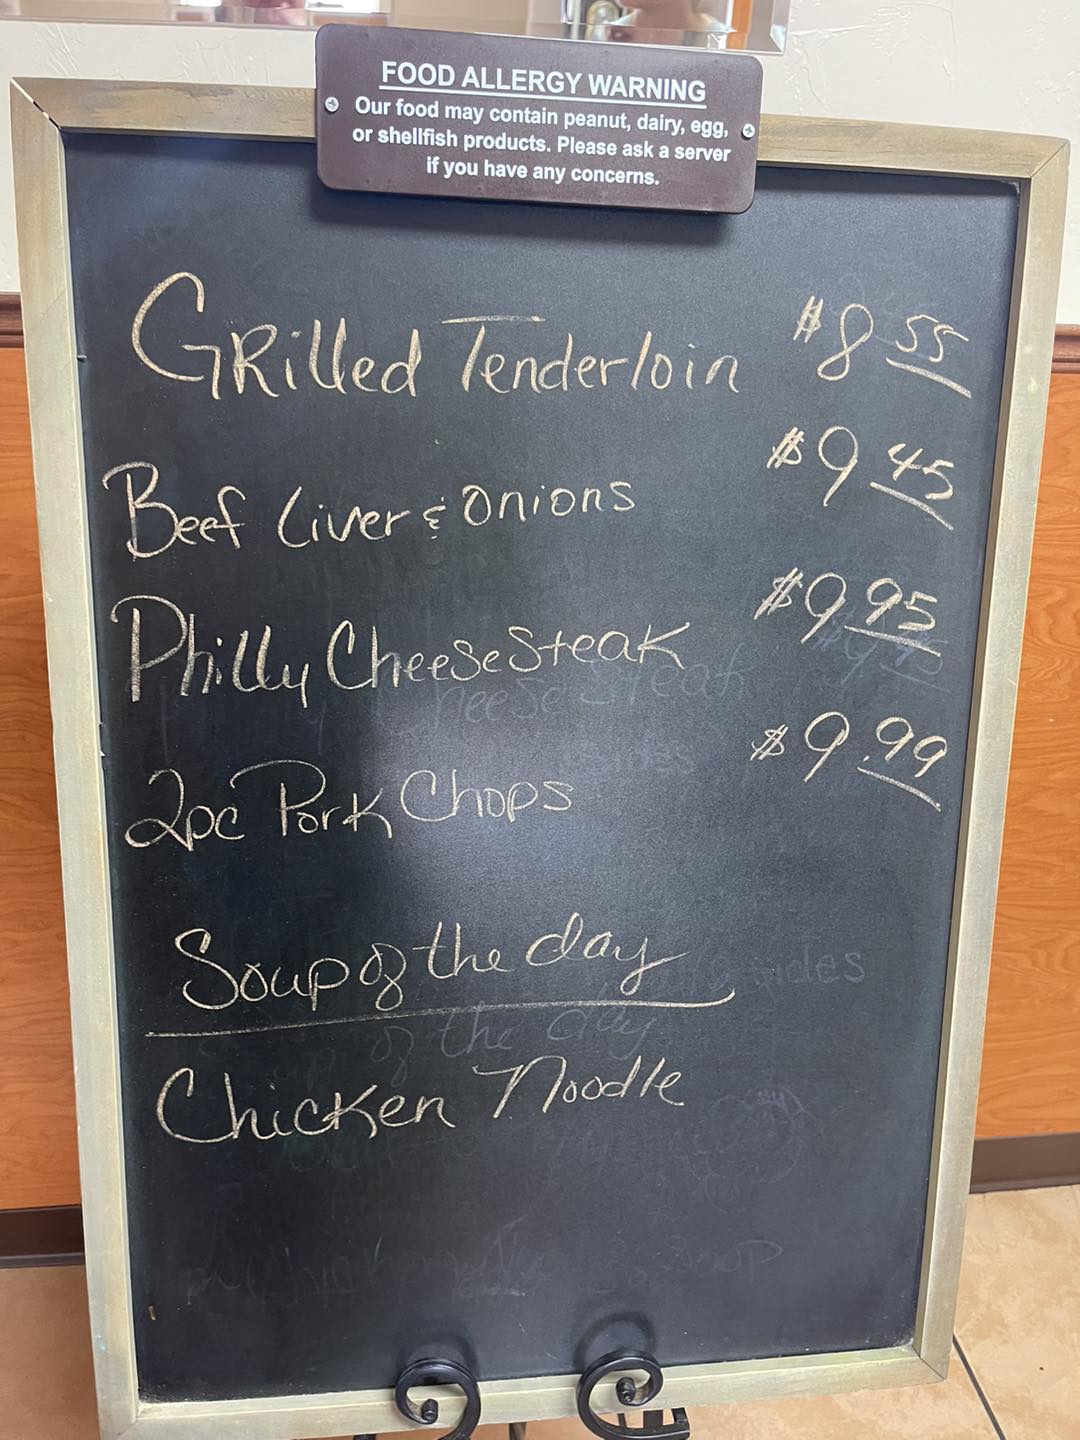 FOOD ALLERGY WARNING
Our food may contain peanut, dairy, egg,
or shellfish products. Please ask a server
if you have any concerns.
GRilled Tenderloin $8 55
Beef Liver & Onions $9 45
Philly CheeseSteak $9 95
2pc Pork Chops $9.99
Soup of the day
Chicken Noodle